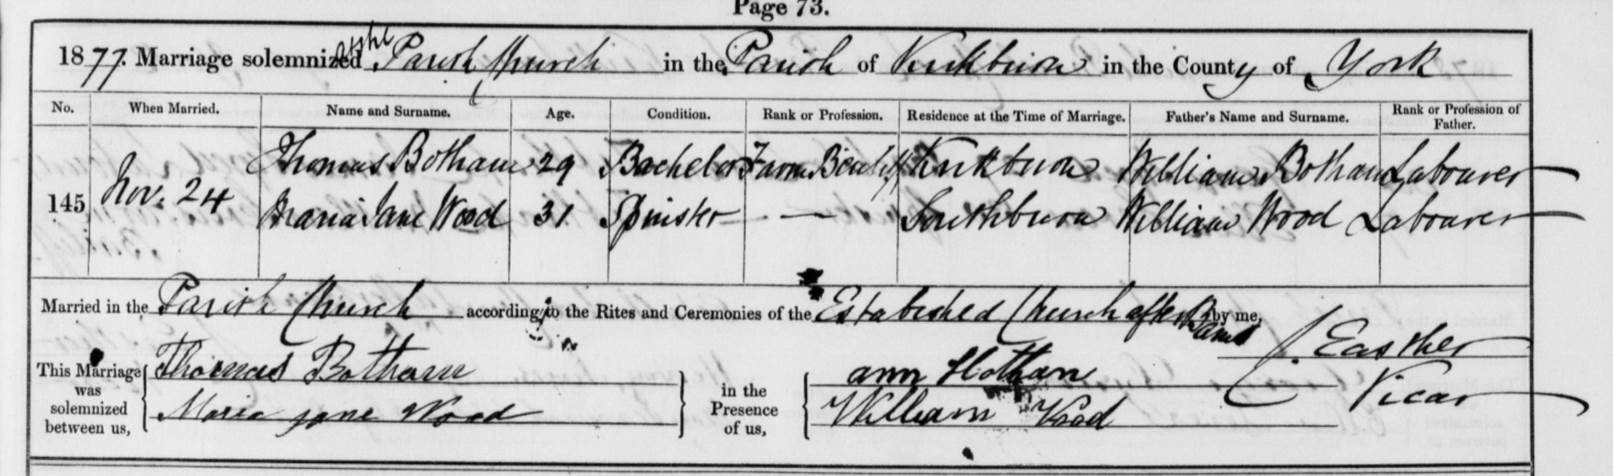 Page 73.
1877. Marriage solemnized at the Parish Church in the Parish of Kirkburn in the County of York
No. When Married. Name and Surname. Age. Condition. Rank or Profession. Residence at the Time of Marriage. Father's Name and Surname. Rank or Profession of Father.
145 Nov. 24 Thomas Botham 29 Bachelor Farm Bailiff Kirkburn William Botham Labourer
Maria Jane Wood 31 Spinster — Southburn William Wood Labourer
Married in the Parish Church according to the Rites and Ceremonies of the Established Church after Banns by me,
C. Easther
Vicar
This Marriage was solemnized between us, Thomas Botham in the Presence of us, ann
Maria jane Wood William Wood